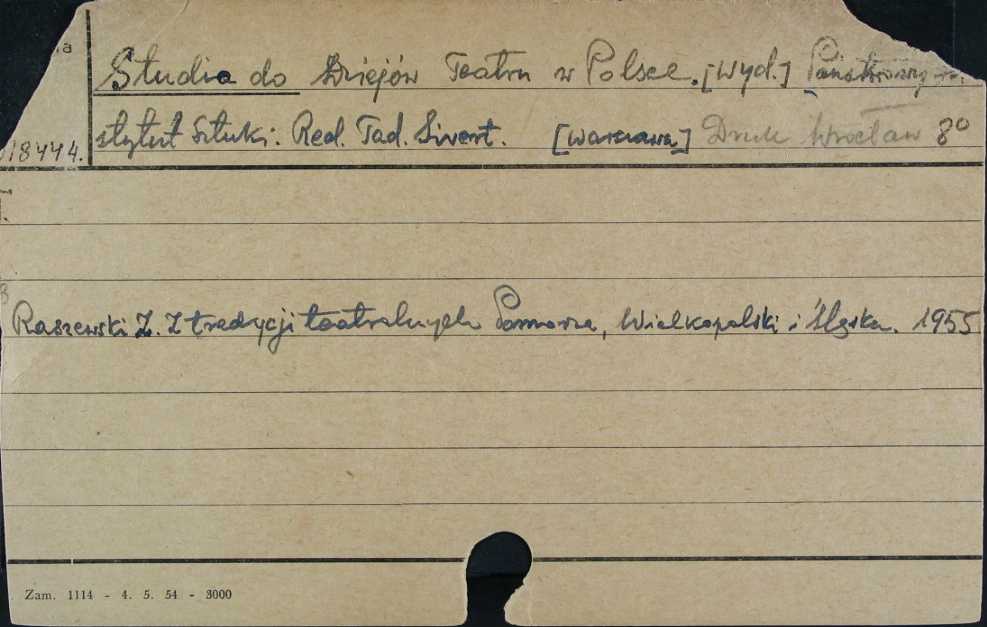 Studia do Dziejów Teatru w Polsce. [Wyd.] Państwowy In-
stytut Sztuki. Red. Tad. Sivert. [Warszawa] Druk Wrocław 8°
18444.
Raszewski Z. Z tradycji teatralnych Pomorza, Wielkopolski i Śląska. 1955
Zam. 1114 - 4. 5. 54 - 3000